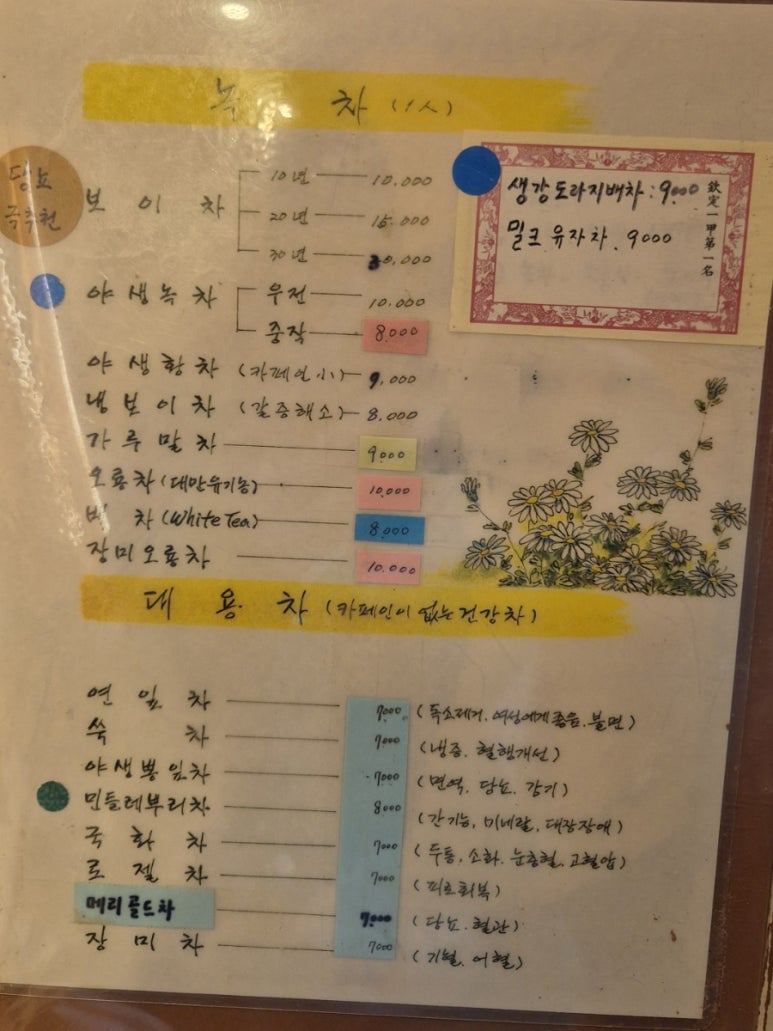 녹 차 (1人)
당뇨
보이차
10년 10,000
20년 15,000
30년 30,000
생강도라지배차 : 9000
밀크 유자차 . 9000
欽定一甲第一名
야생녹차
우전 10,000
중작 8,000
야생황차 (카페인 小) 9,000
냉보이차 (갈증해소) 8,000
가루말차 9000
오룡차 (대만유기농) 10,000
백 차 (White Tea) 8,000
장미오룡차 10,000
대 용 차 (카페인이 없는 건강차)
연잎차 7000 (독소제거, 여성에게 좋음, 불면)
쑥 차 7000 (냉증, 혈행개선)
야생뽕잎차 7000 (면역, 당뇨, 감기)
민들레뿌리차 8000 (간기능, 미네랄, 대장장애)
국화차 7000 (두통, 소화, 눈충혈, 고혈압)
로젤차 7000 (피로회복)
메리골드차 7000 (당뇨, 혈관)
장미차 7000 (기혈, 어혈)